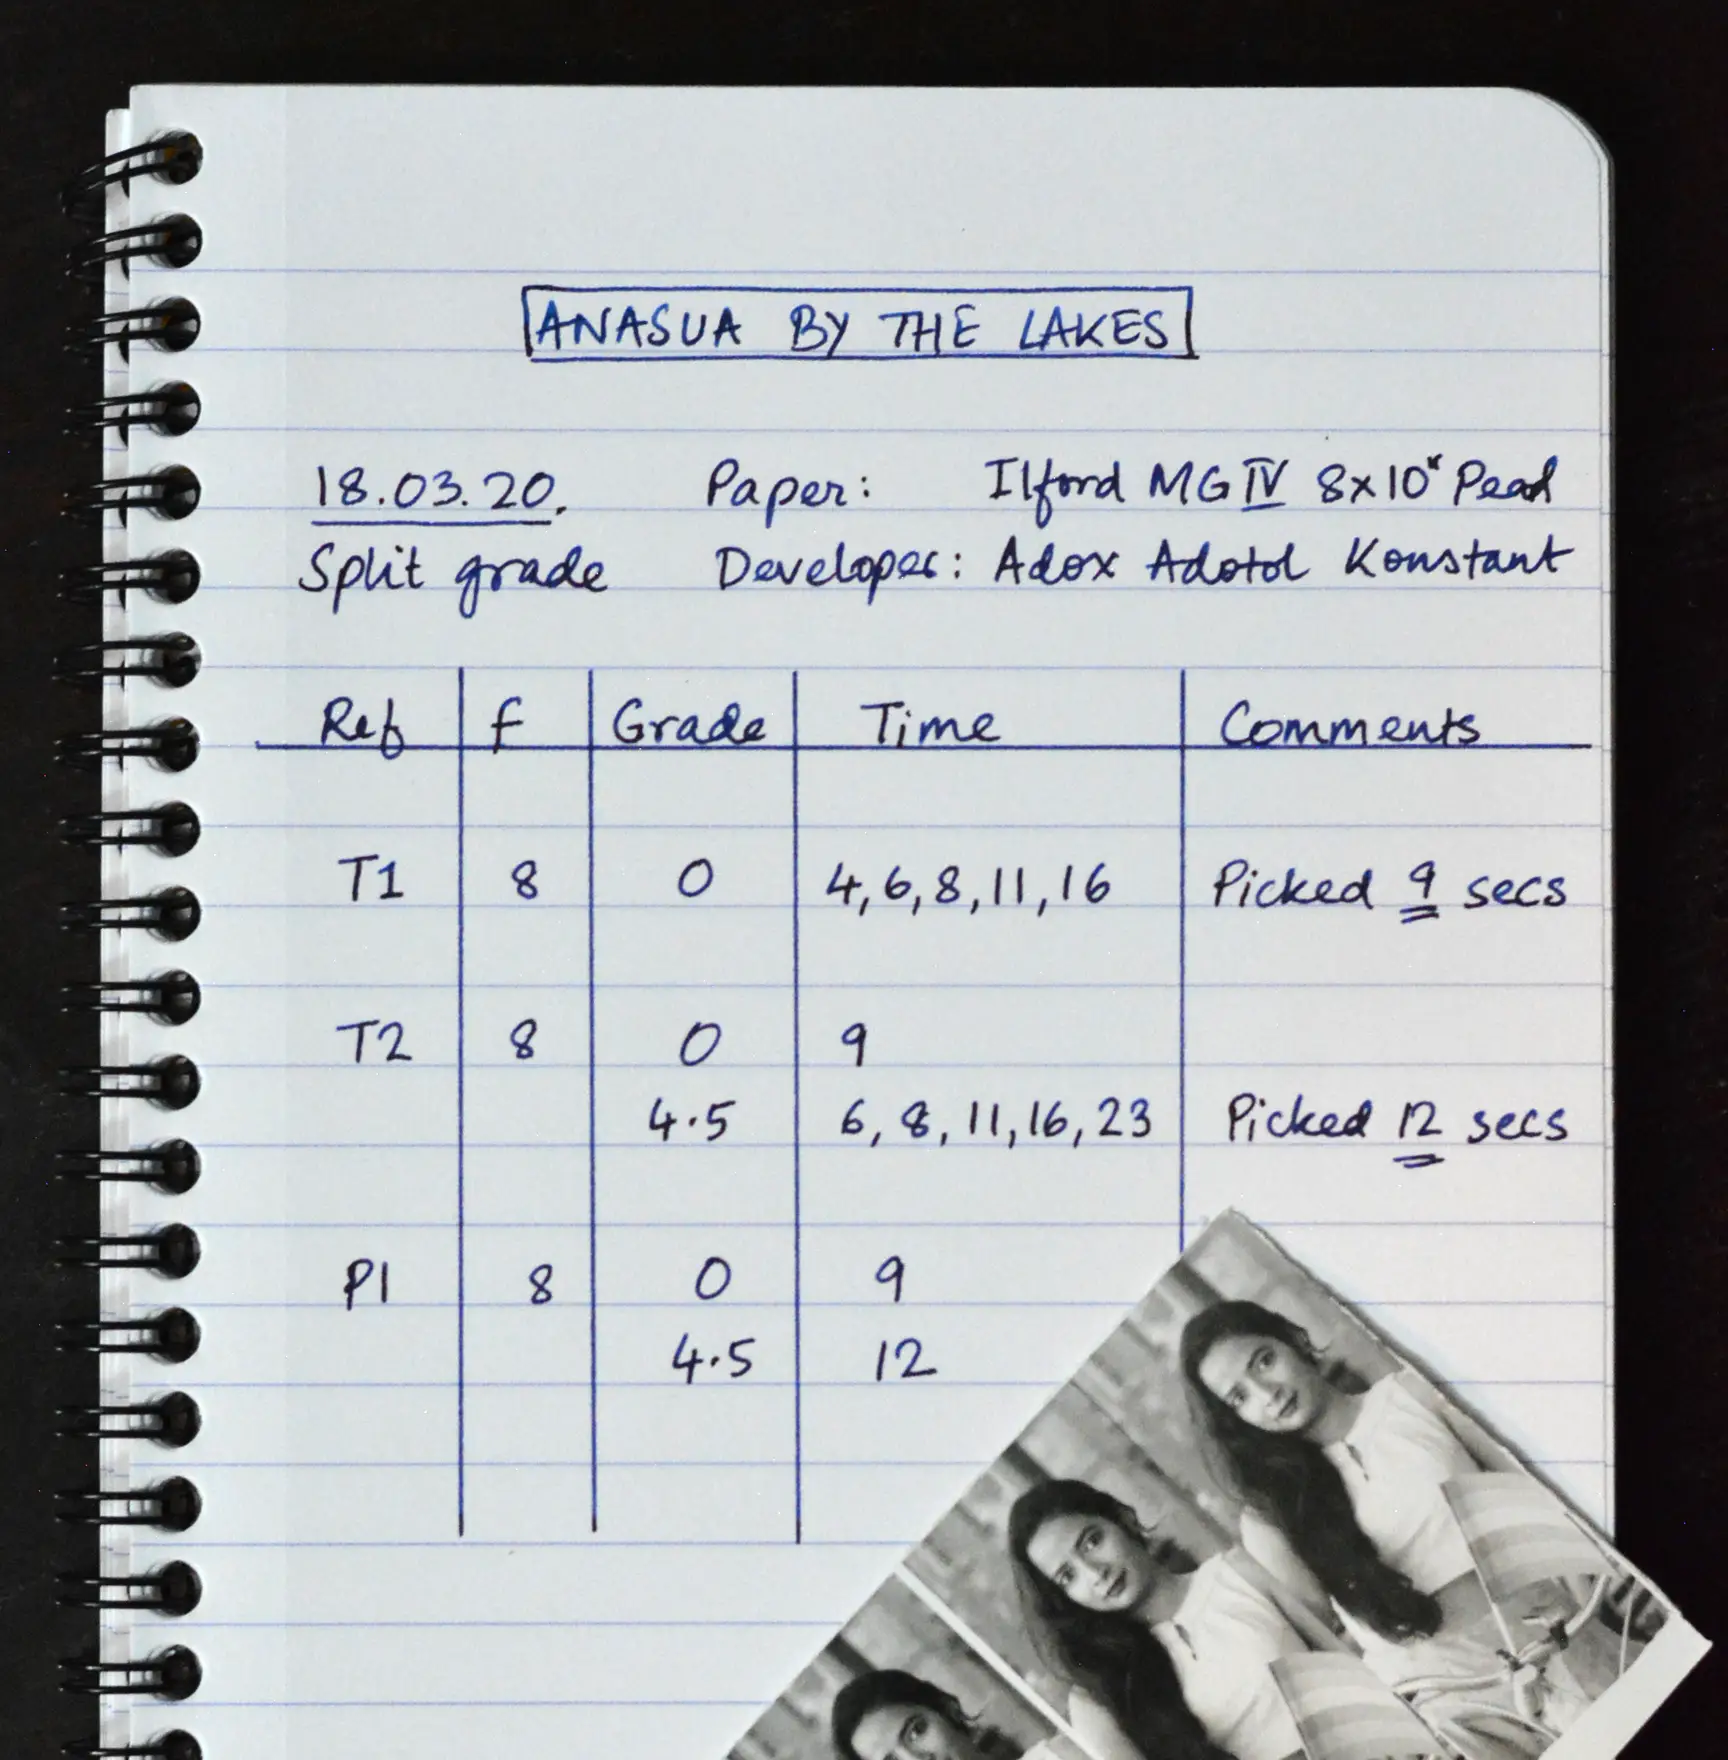 ANASUA BY THE LAKES
18.03.20. Paper: Ilford MG IV 8x10" Pearl
Split grade Developer: Adox Adotol Konstant
Ref f Grade Time Comments
T1 8 0 4, 6, 8, 11, 16 Picked 9 secs
T2 8 0 9
4.5 6, 8, 11, 16, 23 Picked 12 secs
P1 8 0 9
4.5 12